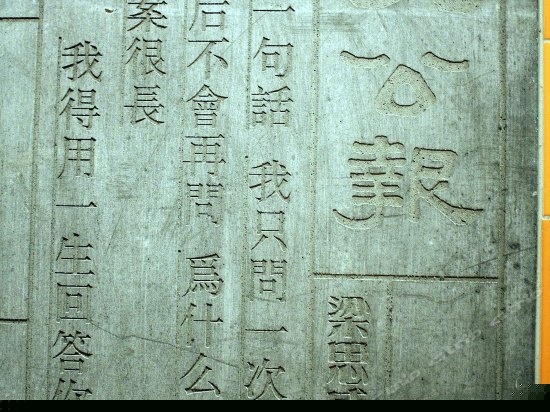 公報
梁思
一句話 我只問一次
后不會再問 爲什么
案很長
我得用一生回答你